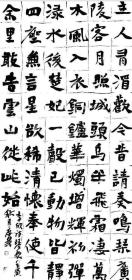 主人有酒歡今昔請奏鳴琴廣
陵客月照城頭烏半飛霜淒萬
木風入衣銅鑪華燭燭增輝初彈
淥水後楚妃一聲已動物皆靜
四座無言星欲稀清淮奉使千
余里敢告雲山從此始